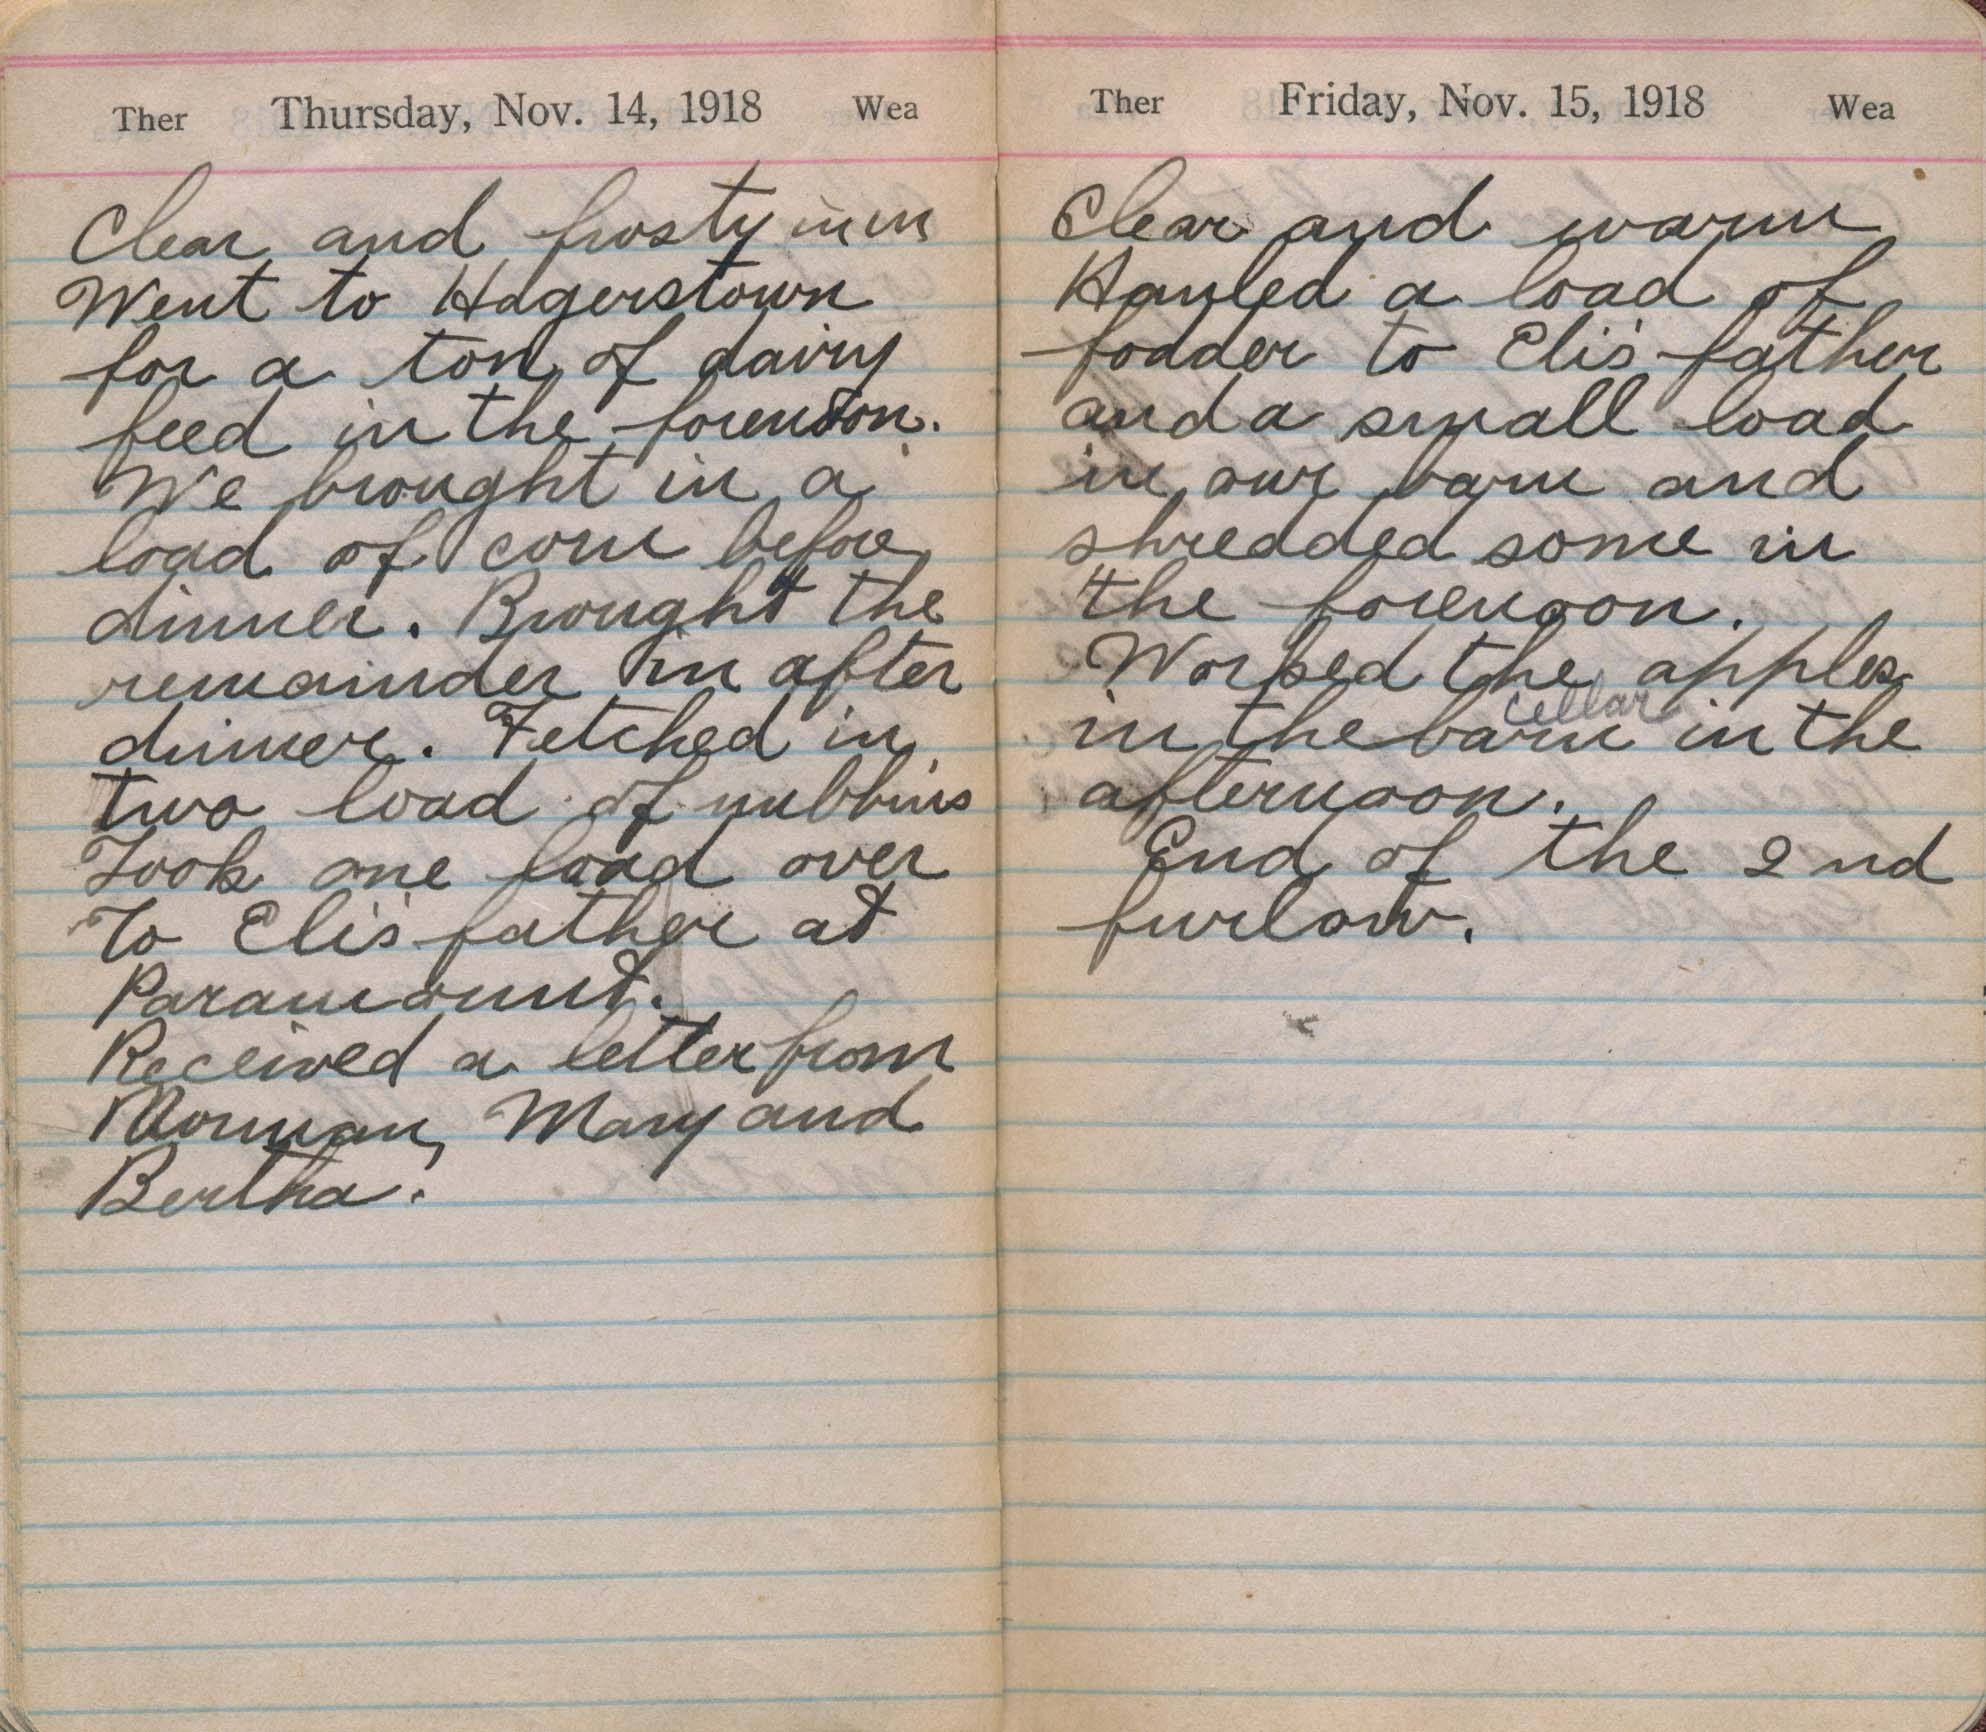 Ther Thursday, Nov. 14, 1918 Wea
Clear and frosty
Went to Hagerstown
for a ton of dairy
feed in the forenoon.
We brought in a
load of corn before
dinner. Brought the
remainder in after
dinner. Fetched in
two load of nubbins
Took one load over
To Eli's father at
Paramount.
Received a letter from
Norman, Mary and
Bertha.
Ther Friday, Nov. 15, 1918 Wea
Clear and warm
Hauled a load of
fodder to Eli's father
and a small load
in our barn and
shredded some in
the forenoon.
Worked the apples
cellar
in the barn in the
afternoon.
End of the 2nd
furlow.